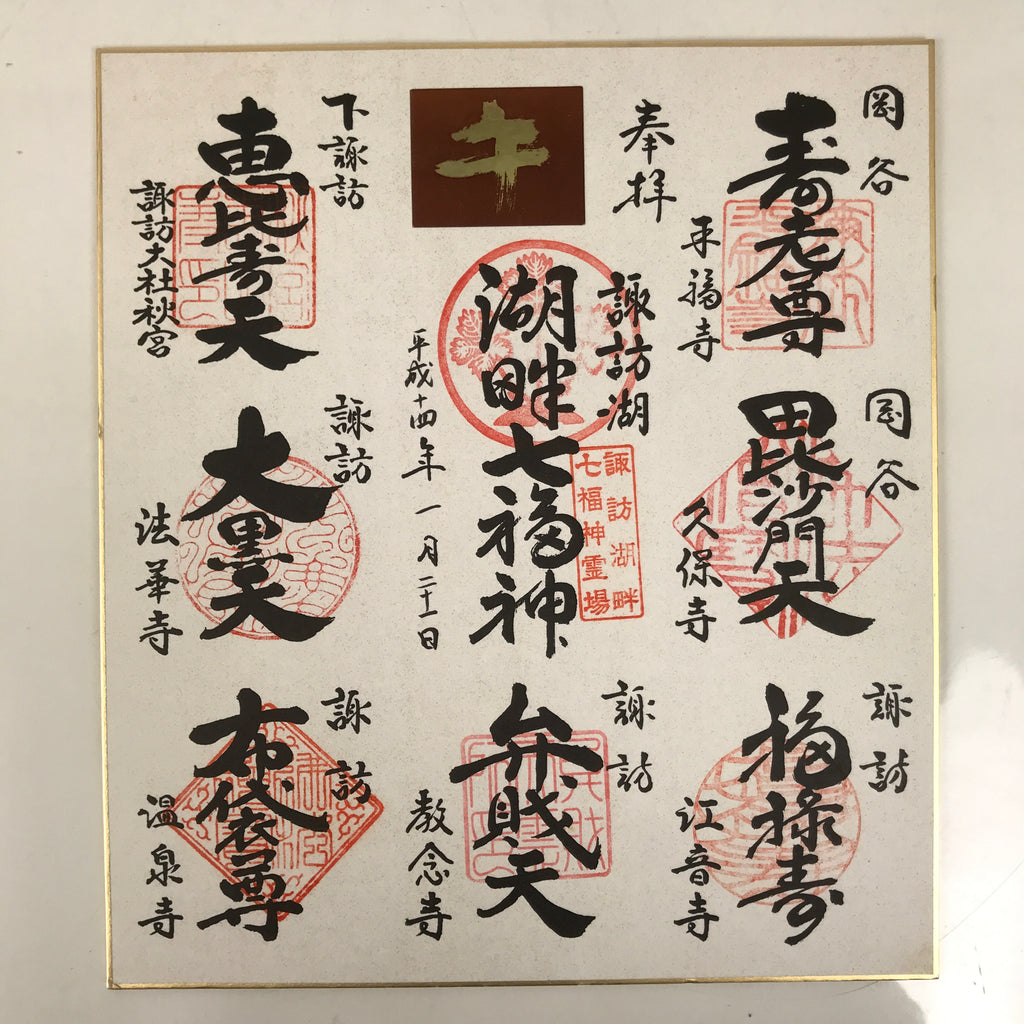 岡谷
寿老尊
平福寺
岡谷
毘沙門天
久保寺
諏訪
福禄寿
江音寺
奉拝
諏訪湖
湖畔七福神
平成十四年一月二十一日
諏訪湖畔
七福神霊場
諏訪
弁財天
教念寺
下諏訪
恵比寿天
諏訪大社秋宮
諏訪
大黒天
法華寺
諏訪
布袋尊
温泉寺